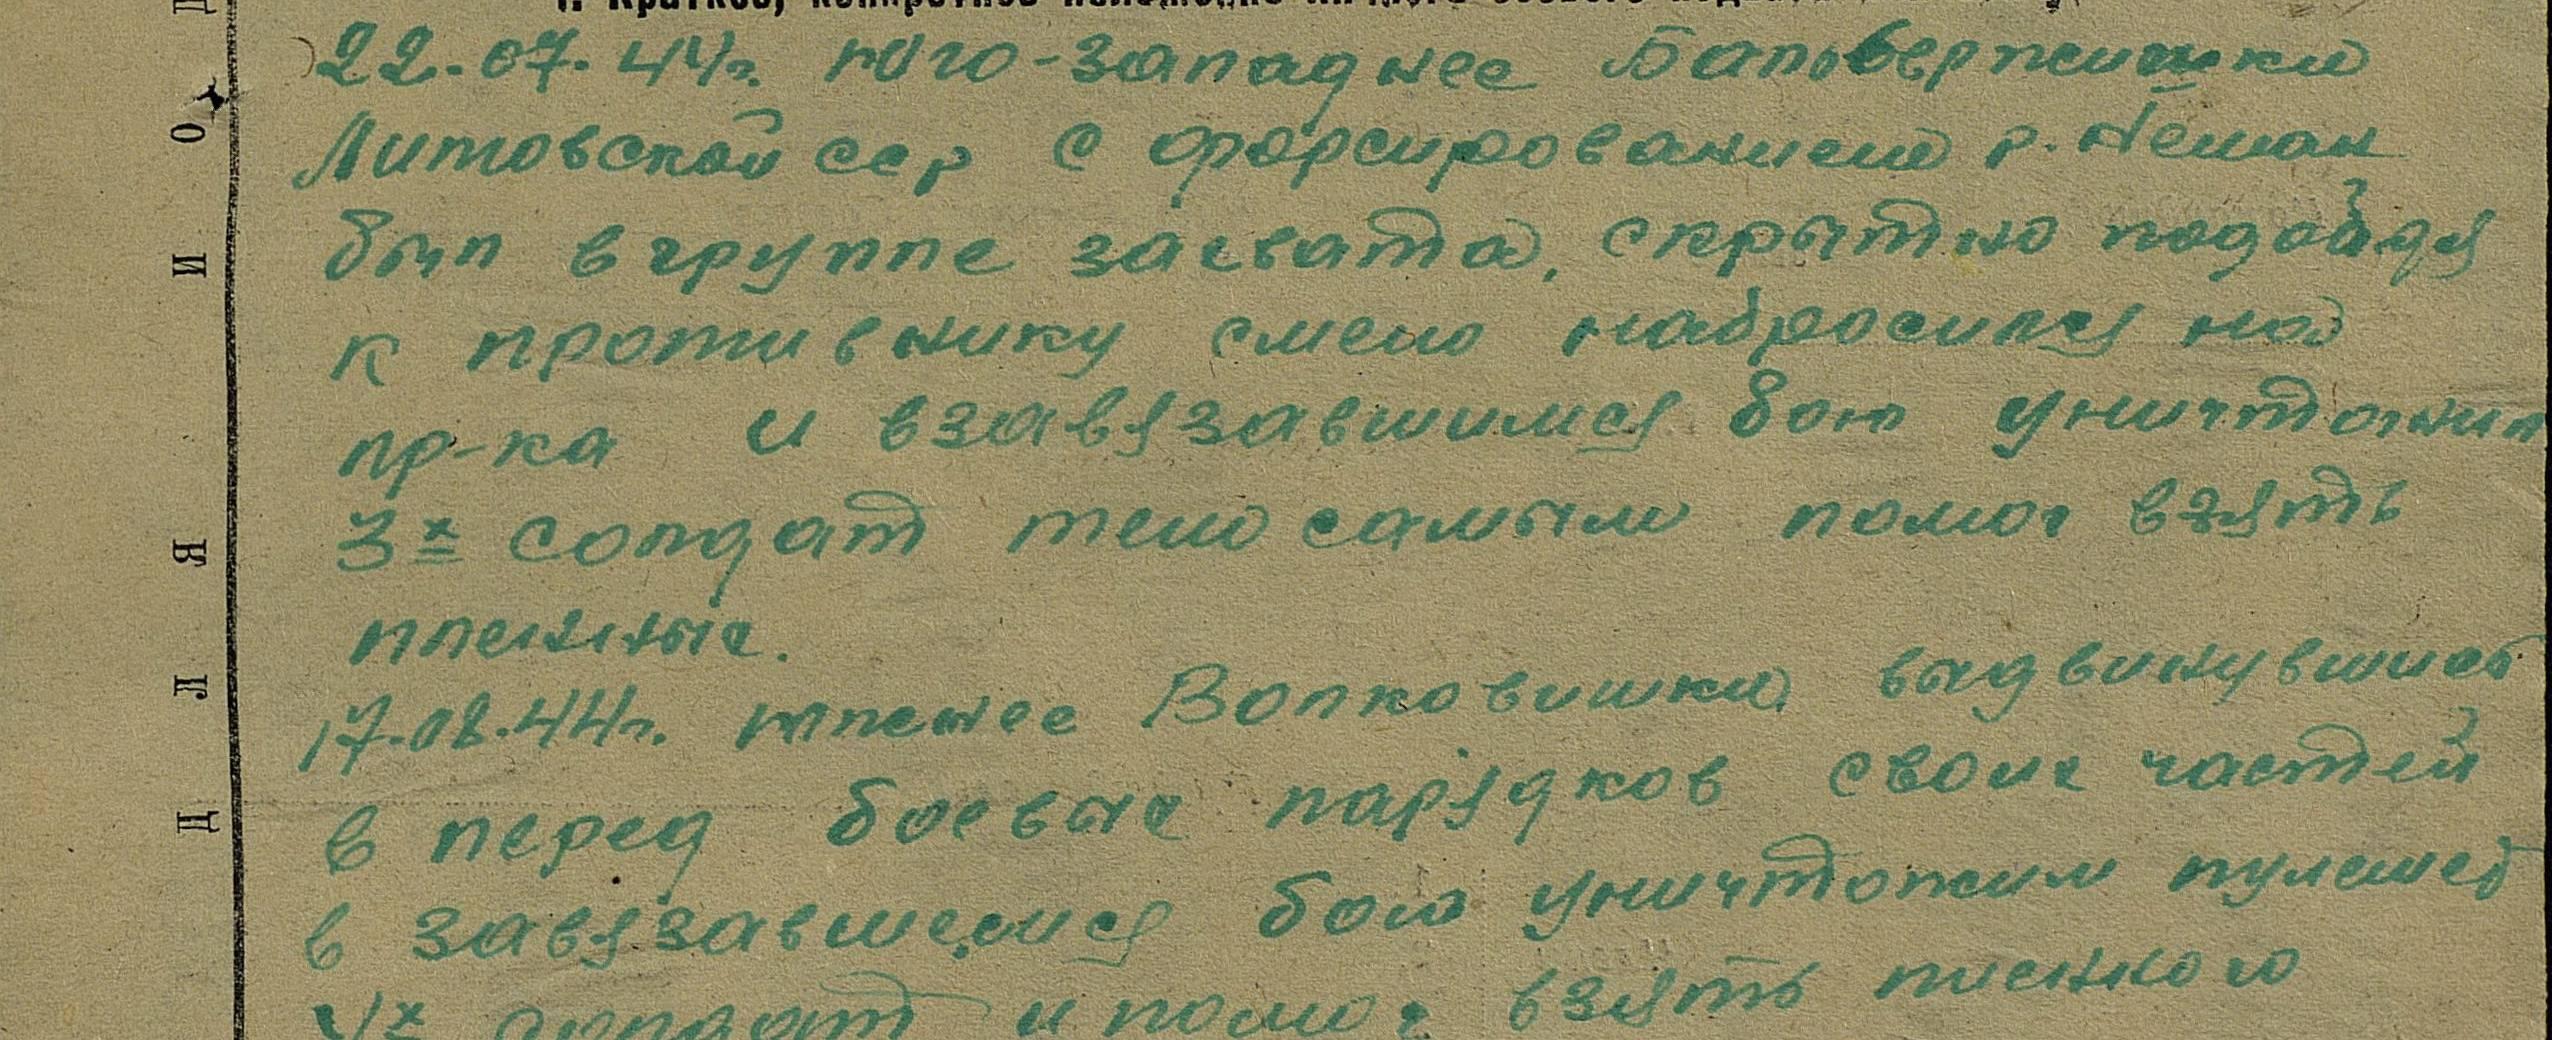 1. Краткое, конкретное изложение личного боевого подвига
22.07.44г. юго-западнее Бальвержишки
Литовской сср с форсированием р. Неман
был в группе захвата, скрытно подойдя
к противнику смело набросился на
пр-ка и взавязавшимся бою уничтожил
3х солдат тем самым помог взять
пленных.
17.08.44г. южнее Волковишки, выдвинувшись
в перед боевых парядков своих частей
в завязавшемся бою уничтожил пулемет
4х солдат и помог взять пленного
Д И О И Я Л Д